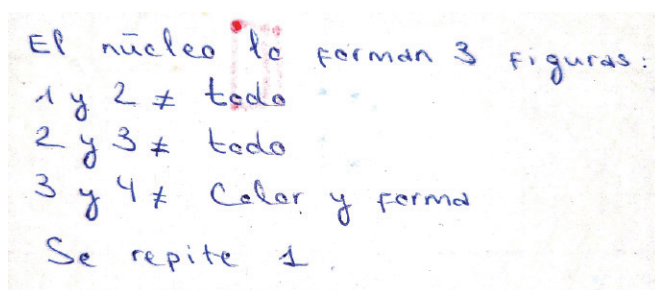 El núcleo lo forman 3 figuras:
1 y 2 ≠ todo
2 y 3 ≠ todo
3 y 4 ≠ Color y forma
Se repite 1.